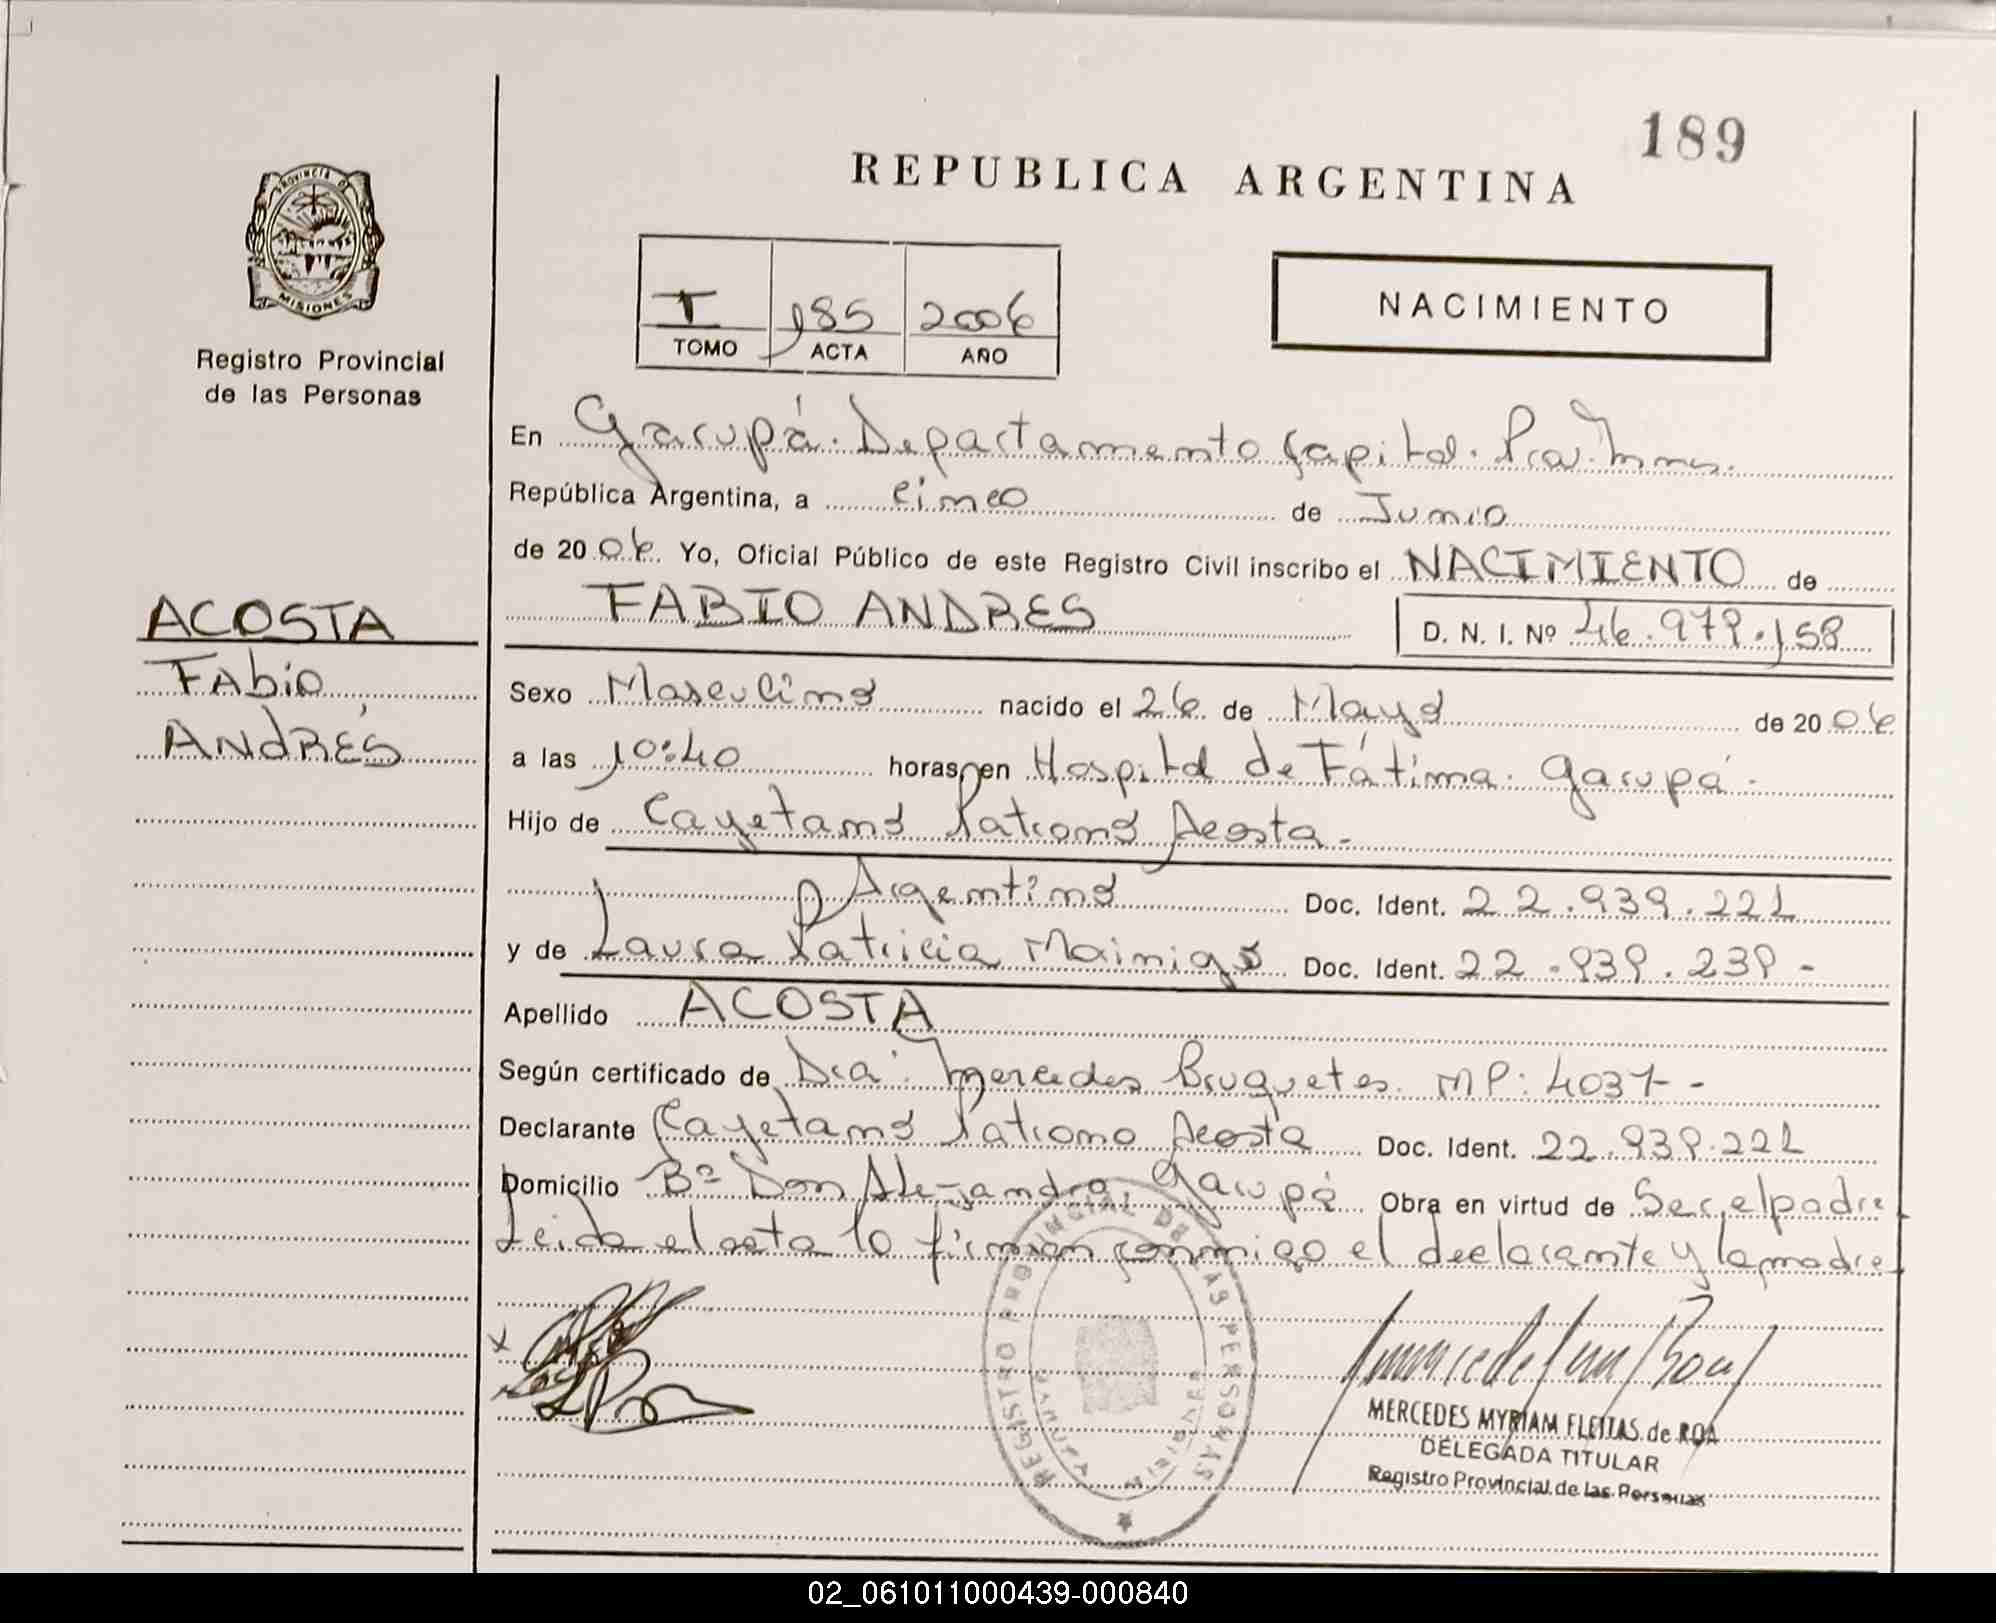 189
REPUBLICA ARGENTINA
PROVINCIA DE
MISIONES
Registro Provincial
de las Personas
I 185 2006
TOMO ACTA AÑO
NACIMIENTO
En Garupá. Departamento Capital. Pcia. Mnes.
República Argentina, a cinco de Junio
de 2006. Yo, Oficial Público de este Registro Civil inscribo el NACIMIENTO de
FABIO ANDRES D. N. I. Nº 46.979.158
ACOSTA
Fabio
ANDRÉS
Sexo Masculino nacido el 26 de Mayo de 2006
a las 10:40 horas, en Hospital de Fátima. Garupá.
Hijo de Cayetano Patrono Acosta.
Argentino Doc. Ident. 22.939.221
y de Laura Patricia Mainigo Doc. Ident. 22.939.239-
Apellido ACOSTA
Según certificado de Dra: Mercedes Bruquetes. MP: 4037-
Declarante Cayetano Patrono Acosta Doc. Ident. 22.939.221
Domicilio Bº Don Alejandro, Garupá Obra en virtud de Ser el padre
Leida el acta lo firman conmigo el declarante y la madre
REGISTRO PROVINCIAL DE LAS PERSONAS
MERCEDES MYRIAM FLEITAS de ROA
DELEGADA TITULAR
Registro Provincial de las Personas
02_061011000439-000840